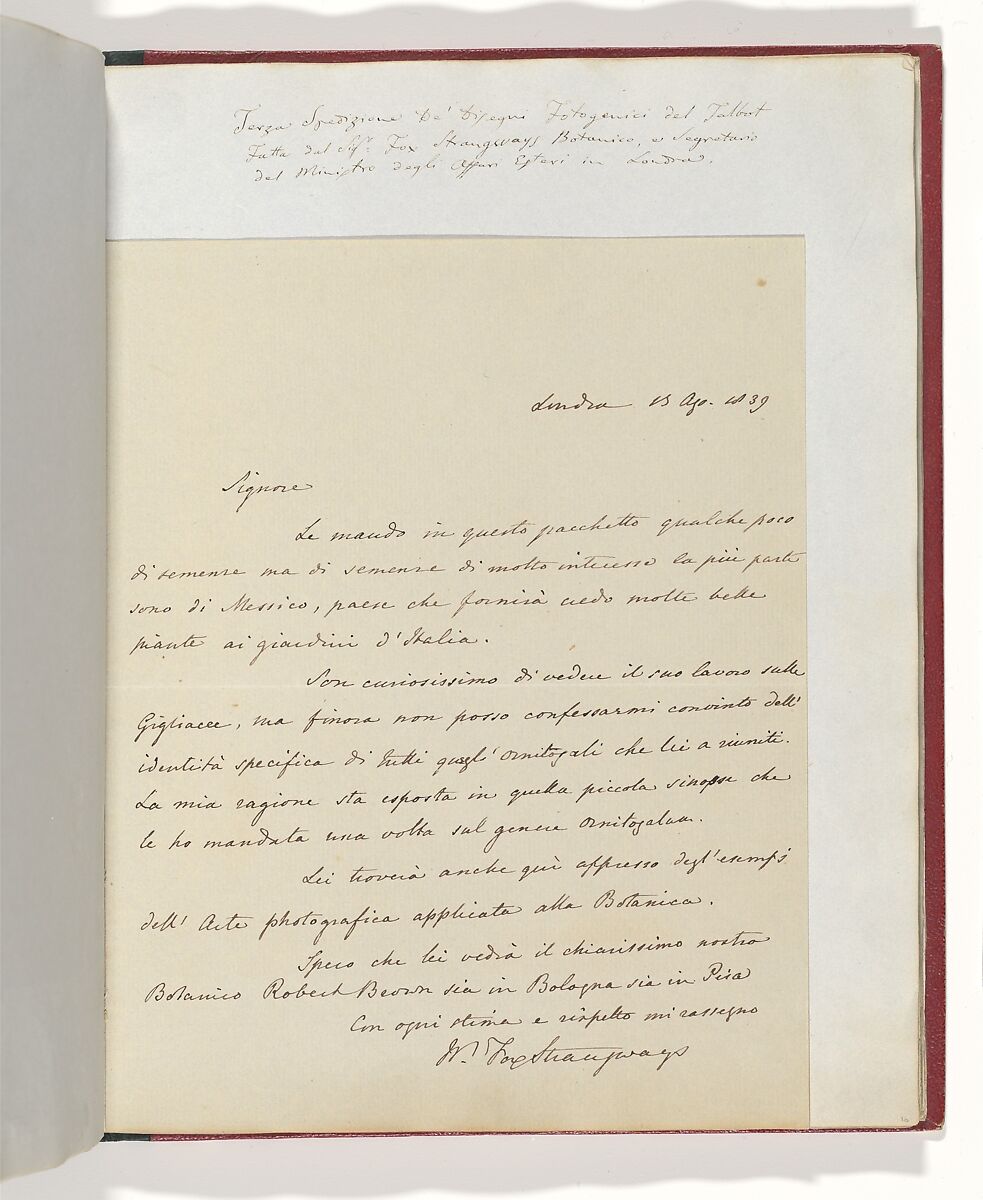 Terza Spedizione De' Disegni Fotogenici del Talbot
Fatta dal Sigr. Fox Strangways Botanico, e Segretario
del Ministro degli Affari Esteri in Londra.
Londra 13 Ago. 1839
Signore
Le mando in questo pacchetto qualche poco
di semenze ma di semenze di molto interesse la più parte
sono di Messico, paese che fornirà credo molte belle
piante ai giardini d'Italia.
Son curiosissimo di vedere il suo lavoro sulle
Gigliacee, ma finora non posso confessarmi convinto dell'
identità specifica di tutti quegl' Ornitogali che lei a riuniti.
La mia ragione sta esposta in quella piccola sinopse che
le ho mandata una volta sul genere Ornitogalum.
Lei troverà anche quì appresso degl' esempj
dell' Arte photografica applicata alla Botanica.
Spero che lei vedrà il chiarissimo nostro
Botanico Robert Brown sia in Bologna sia in Pisa
Con ogni stima e rispetto mi rassegno
Wm. Fox Strangways